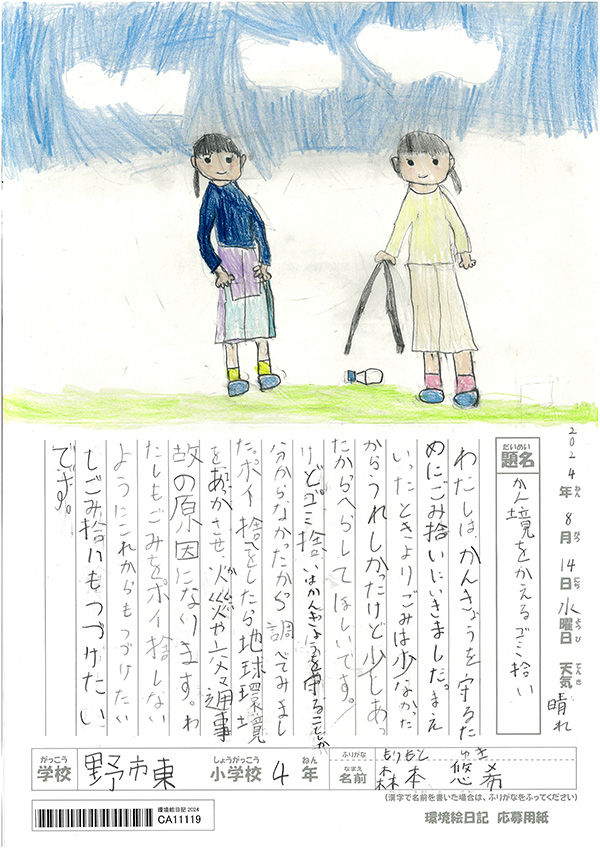 2024年8月14日水曜日 天気晴れ
ねん がつ にち ようび てんき
だいめい
題名
かん境をかえるゴミ拾い
わたしは、かんきょうを守るた
めにごみ拾いにいきました。まえ
いったときよりごみは少なかった
からうれしかったけど少しあっ
たからへらしてほしいです。
けどゴミ捨いはかんきょうを守ることしか
分からなかったから調べてみまし
た。ポイ捨てをしたら地球環境
をあっかさせ、火災や交通事
故の原因になります。わ
たしもごみをポイ捨しない
ようにこれからもつづけたい
しごみ拾いもつづけたい
です。
がっこう
学校
野市東
しょうがっこう
小学校
4
ねん
年
ふりがな
もりもと ゆき
なまえ
名前
森本 悠希
(漢字で名前を書いた場合は、ふりがなをふってください)
環境絵日記 2024
CA11119
環境絵日記 応募用紙